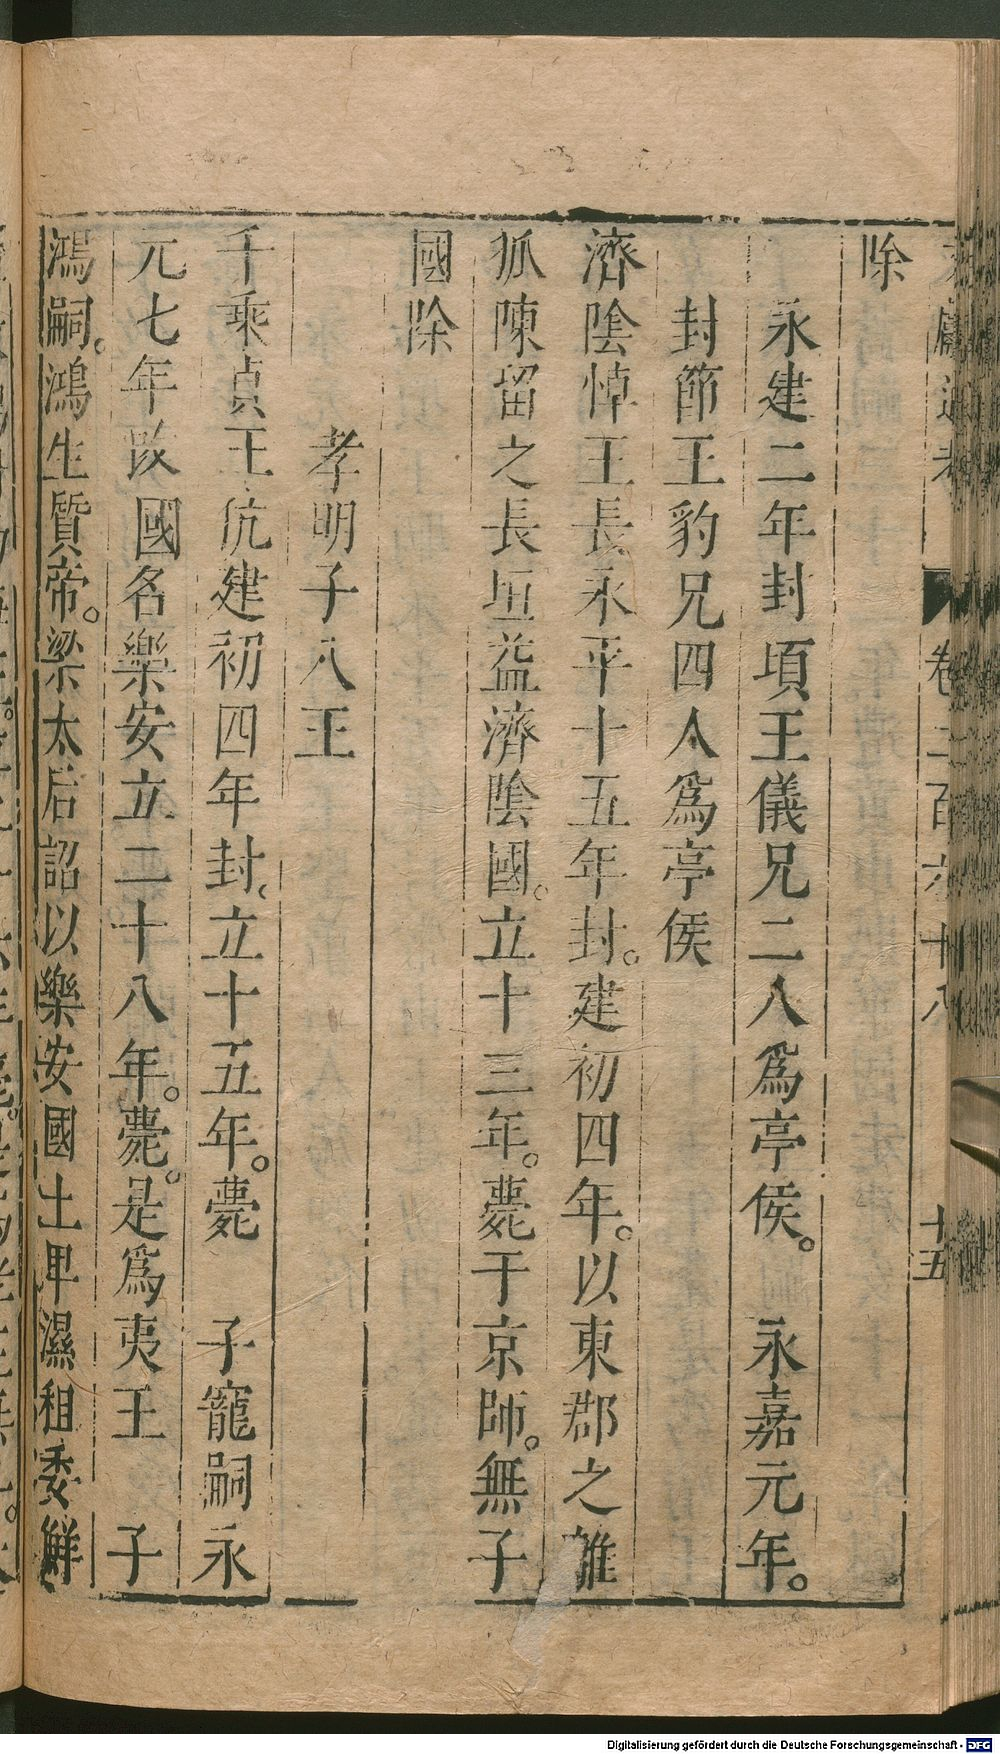 卷二百六十八 十五
除
永建二年封頃王儀兄二人爲亭侯。 永嘉元年。
封節王豹兄四人爲亭侯
濟陰悼王長永平十五年封。建初四年。以東郡之離
狐陳留之長垣益濟陰國。立十三年。薨于京師。無子
國除
孝明子八王
千乘貞王伉建初四年封。立十五年。薨 子寵嗣永
元七年改國名樂安立二十八年。薨。是爲夷王 子
鴻嗣。鴻生質帝。梁太后詔以樂安國土卑濕租委鮮
Digitalisierung gefördert durch die Deutsche Forschungsgemeinschaft - DFG